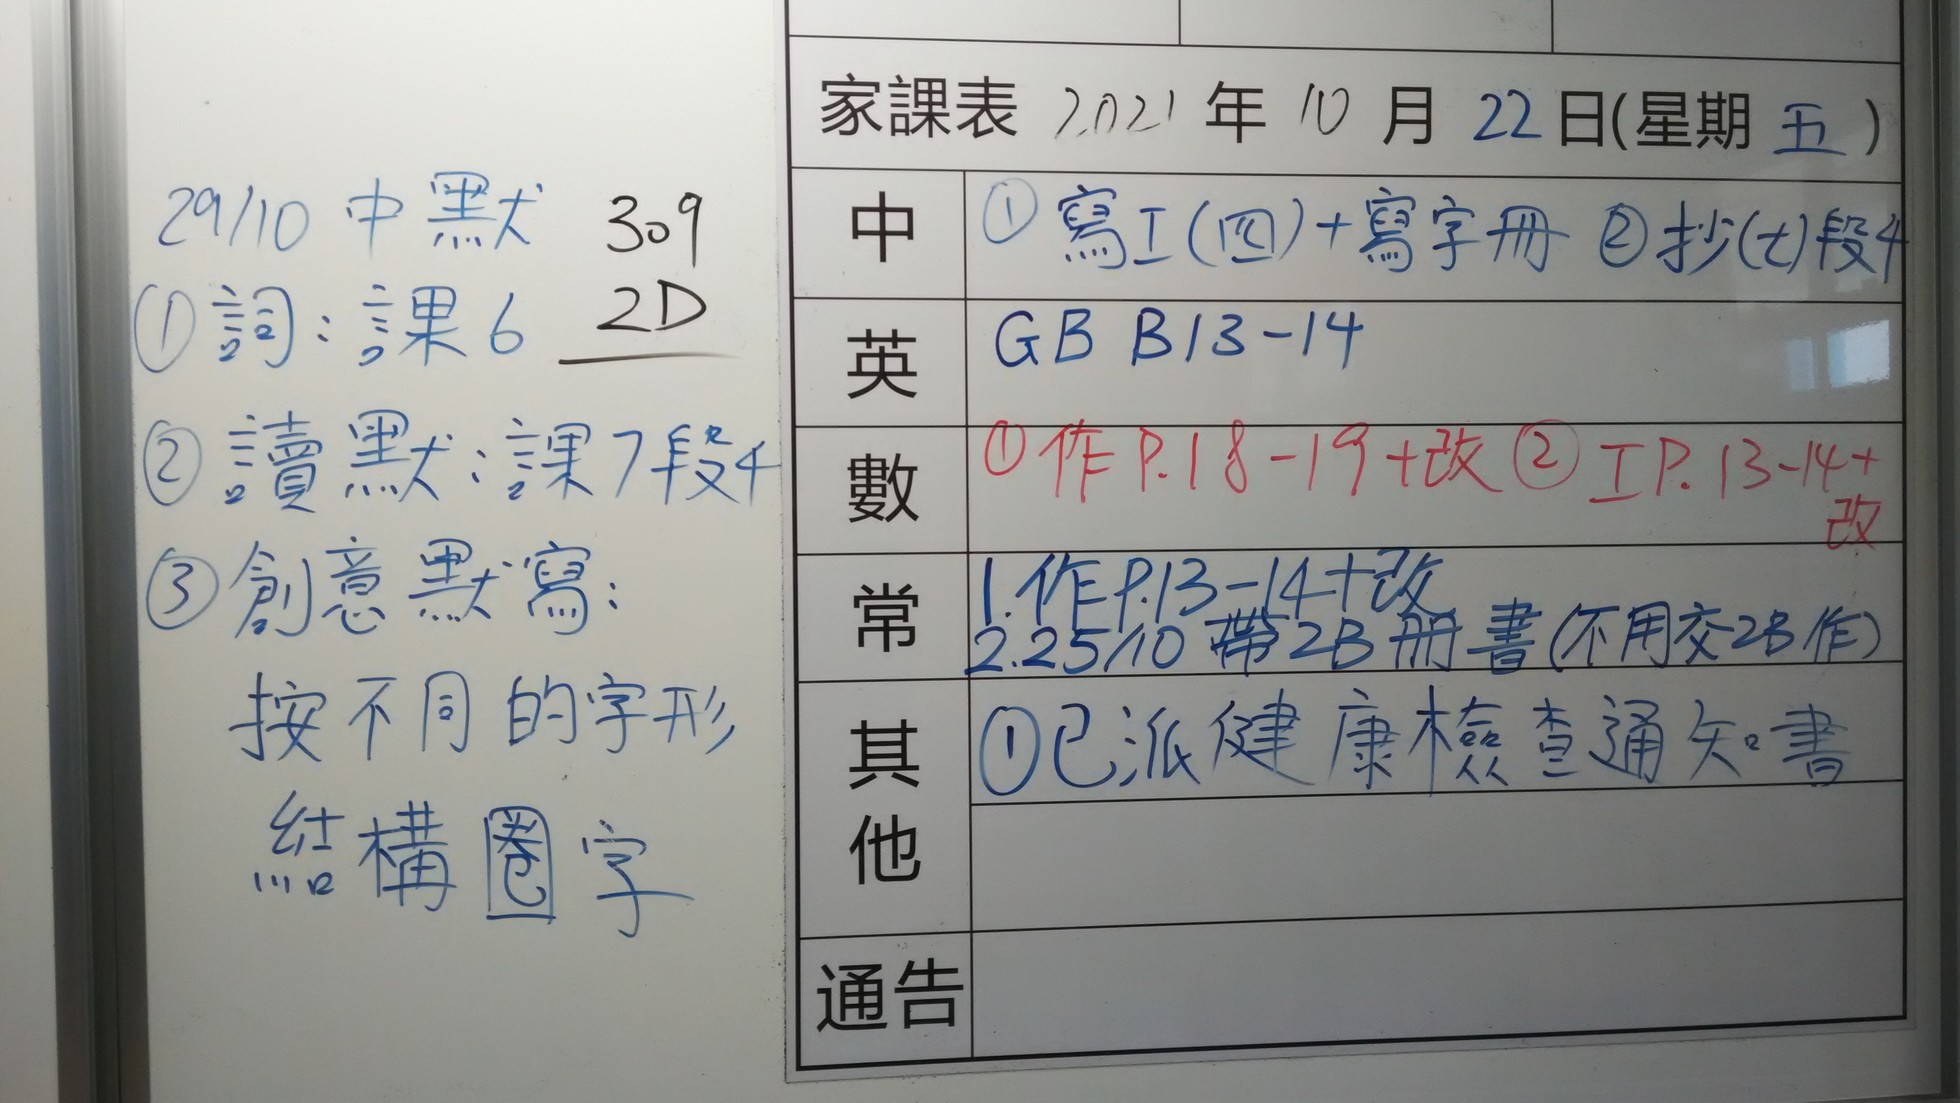 29/10 中默 309
①詞：課6 2D
②讀默：課7段4
③創意默寫：
按不同的字形
結構圈字
家課表 2021 年 10 月 22 日(星期 五 )
中 ①寫工(四)+寫字冊 ②抄(七)段4
英 GB B13-14
數 ①作P.18-19+改 ②工P.13-14+
改
常 1.作P.13-14+改
2.25/10 帶2B冊書(不用交2B作)
其他 ①已派健康檢查通知書
通告